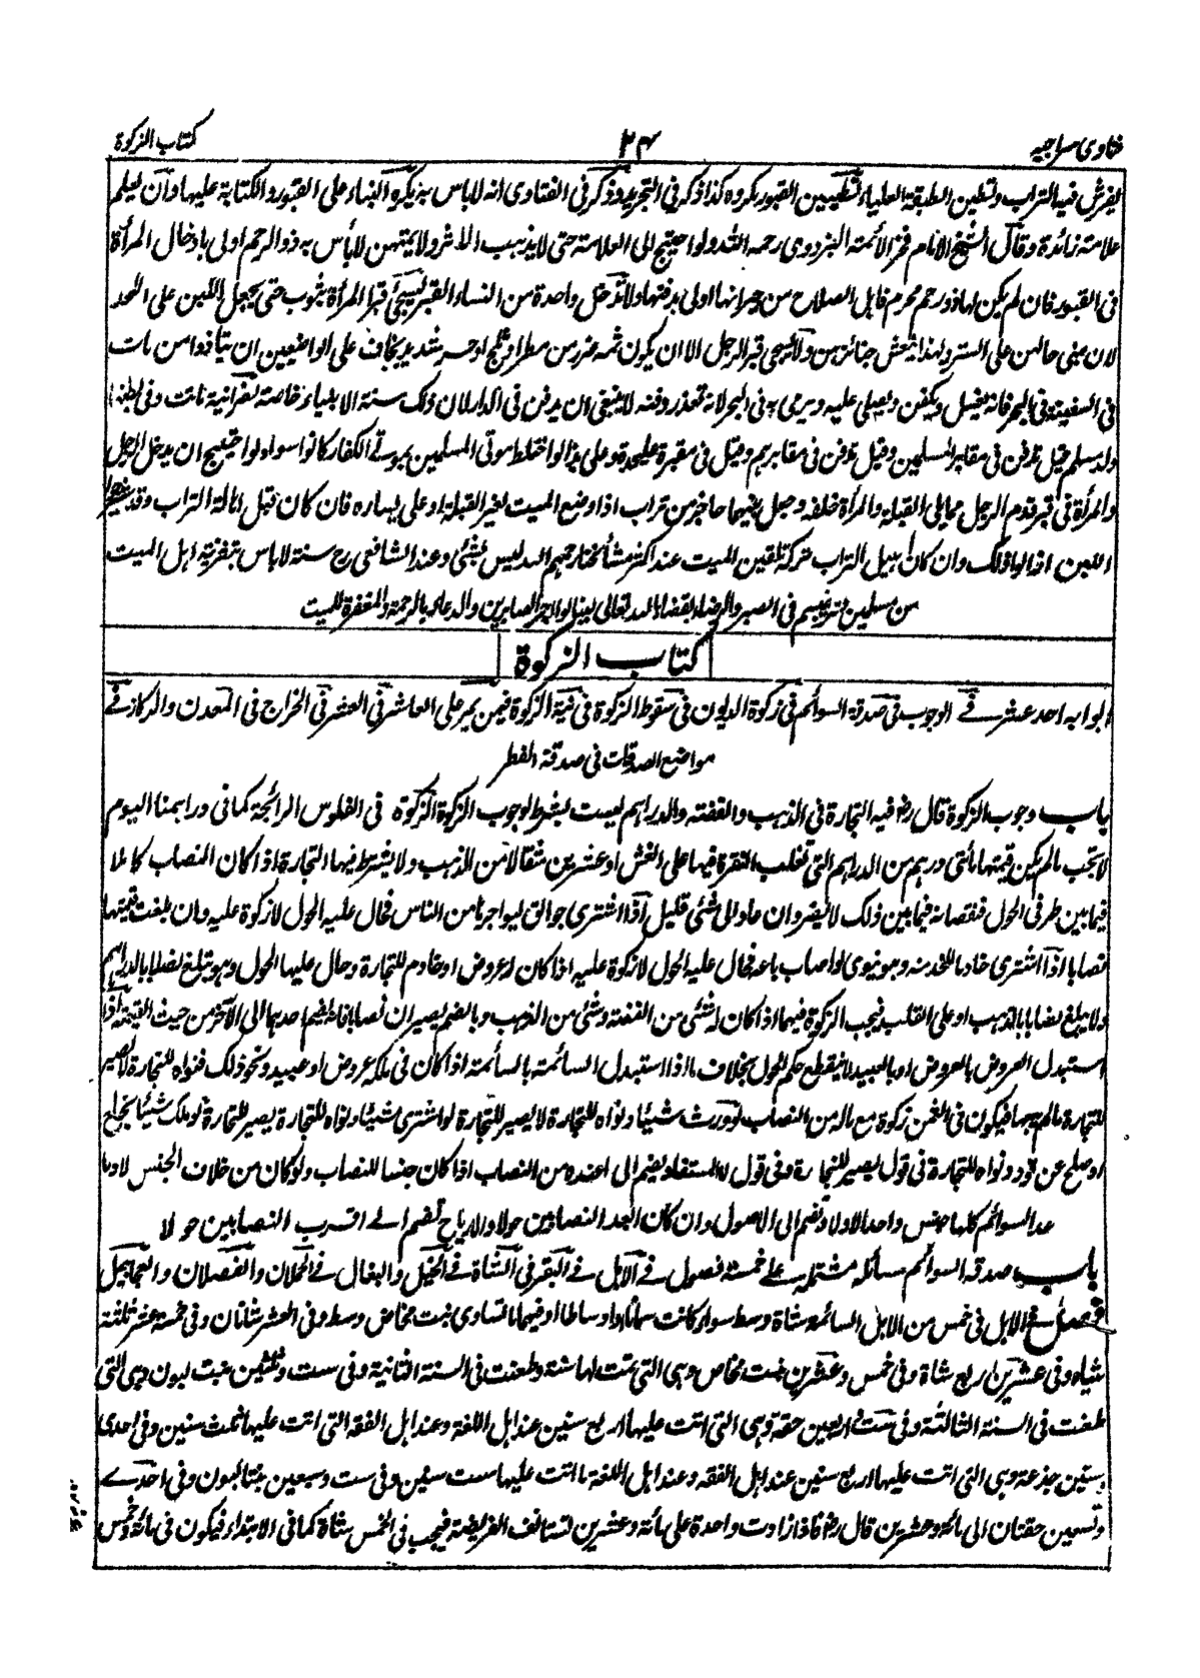 فتاوى سراجيه ٢٤ كتاب الزكوة
يفرش فيه التراب وتطين الطبقة العلياء تطيين القبور مكروه كذا ذكر فى التجريد وذكر فى الفتاوى انه لاباس به يكره البناء على القبور والكتابة عليها وان يعلم
علامته زائدة وقال الشيخ الامام فخر الأئمة البزدوى رحمه الله ولو احتيج الى العلامة حتى لا يذهب الاثر ولا يمتهن لابأس به ذو الرحم اولى بادخال المرأة
فى القبور فان لم يكن لها ذو رحم محرم فاهل الصلاح من جيرانها اولى بدفنها ولا تدخل واحدة من النساء القبر يسجى قبر المرأة بثوب حتى يجعل اللبن على اللحد
لان مبنى حالهن على الستر ولهذا تنعش جنائزهن ولا يسجى قبر الرجل الا ان يكون ثمه عذر من مطر او ثلج او حر شديد يخاف على الواضعين ان يتأذوا من مات
فى السفينة فى البحر فانه يغسل ويكفن ويصلى عليه ويرمى به فى البحر لانه تعذر دفنه لا ينبغى ان يدفن فى الدار لان ذلك سنة الانبياء خاصة نصرانية ماتت وفى بطنها
ولد مسلم قيل تدفن فى مقابر المسلمين وقيل تدفن فى مقابرهم وقيل فى مقبرة عليحدة وعلى هذا لو اختلط موتى المسلمين بموتى الكفار كانوا سواء لو احتيج ان يدخل الرجل
والمرأة فى قبر قدم الرجل ممايلى القبلة والمرأة خلفه وجعل بينهما حاجز من تراب اذا وضع الميت لغير القبلة او على يساره فان كان قبل اهالة التراب وقد
اللبن ازالوا ذلك وان كان اهيل التراب ترك تلقين الميت عند اكثر مشائخنا رحمهم الله ليس بشئ وعند الشافعى رح سنة لاباس بتعزية اهل الميت
من مسلمين ترغيبهم فى الصبر والرضاء بقضاء الله تعالى لينالوا اجر الصابرين والدعاء بالرحمة والمغفرة للميت
كتاب الزكوة
ابوابه احد عشر فى الوجوب فى صدقة السوائم فى زكوة الديون فى سقوط الزكوة فى نية الزكوة فيمن يمر على العاشر فى العشر فى الخراج فى المعدن والركاز فى
مواضع الصدقات فى صدقة الفطر
باب وجوب الزكوة قال رض فيه التجارة فى الذهب والفضة والدراهم ليست بشرط لوجوب الزكوة الزكوة فى الفلوس الرائجة كما فى دراهمنا اليوم
لا تجب مالم يكن قيمتها مائتى درهم من الدراهم التى تغلب النقرة فيها على الغش او عشرين مثقالا من الذهب ولا يشترط فيها التجارة اذا كان النصاب كاملا
فيما بين طرفى الحول فنقصانه فيما بين ذلك لا يضر وان عاد الى شئ قليل اذا اشترى جوالق ليواجرها من الناس فحال عليه الحول لا زكوة عليه وان بلغت قيمتها
نصابا اذا اشترى خادما للخدمة وهو ينوى لو اصاب باعه فحال عليه الحول لا زكوة عليه اذا كان له عروض او خادم للتجارة وحال عليها الحول وهو تبلغ نصابا بالدراهم
ولا يبلغ نصابا بالذهب او على القلب فيجب الزكوة فيها اذا كان له شئ من الفضة وشئ من الذهب وبالضم يصير ان نصابا فانه يضم احدهما الى الآخر من حيث القيمة اذا
استبدل العروض بالعروض او بالعبيد لا ينقطع حكم الحول بخلاف ما اذا استبدل السائمة بالسائمة اذا كان فى ملكه عروض او عبيد ونحو ذلك فنواه للتجارة لا يصير
للتجارة مالم يبعها فيكون فى الثمن زكوة مع ماله من النصاب لو ورث شيئا ونواه للتجارة لا يصير للتجارة لو اشترى شيئا ونواه للتجارة يصير للتجارة لو ملك شيئا بخلع
او صلح عن قود ونواه للتجارة فى قول يصير للتجارة وفى قول لا المستفاد يضم الى ما عنده من النصاب اذا كان جنسا للنصاب ولو كان من خلاف الجنس لا وما
عد السوائم كلها جنس واحد الاولاد تضم الى الاصول وان كان ابعد النصابين حولا والارباح تضم الى اقرب النصابين حولا
باب صدقة السوائم مسائله مشتملة على خمسة فصول فى الابل فى البقر فى الشاة فى الخيل والبغال فى الحملان والفصلان والعجاجيل
فصل فى الابل فى خمس من الابل السائمة شاة وسط سواء كانت سمانا او اوساطا او فيها ما تساوى بنت مخاض وسط وفى العشر شاتان وفى خمسة عشر ثلثة
شياه وفى عشرين اربع شاة وفى خمس وعشرين بنت مخاض وهى التى تمت لها سنة وطعنت فى السنة الثانية وفى ست وثلثين بنت لبون وهى التى
طعنت فى السنة الثالثة وفى ست واربعين حقة وهى التى اتت عليها اربع سنين عند اهل اللغة وعند اهل الفقه التى اتت عليها ثلث سنين وفى احدى
وستين جذعة وهى التى اتت عليها اربع سنين عند اهل الفقه وعند اهل اللغة ما اتت عليها ست سنين وفى ست وسبعين بنتا لبون وفى احدى
وتسعين حقتان الى مائة وعشرين قال رض فاذا زادت واحدة على مائة وعشرين تستانف الفريضة فيجب فى الخمس شاة كما فى الابتداء فيكون فى مائة وخمس